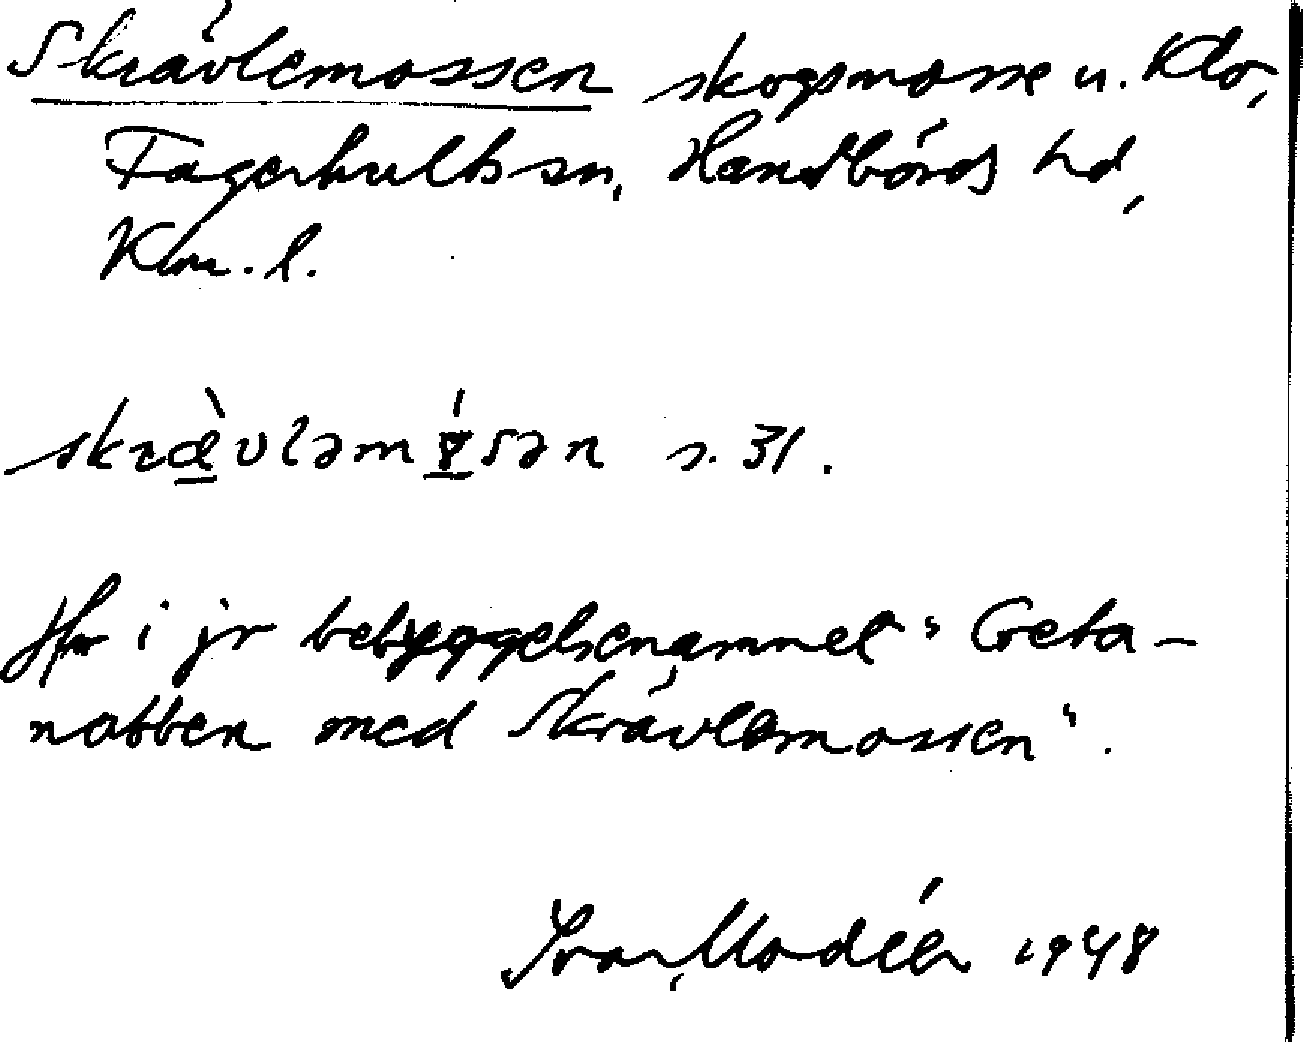 Skrävlemossen skogsmosse u. Klo,
Fagerhults sn, Handbörds hd,
Klm. l.
skræ̀vləm sən s. 31.
i jr bebyggelsenamnet "Geta-
nabben med Skrävlemossen".
Ivar Modéer 1948